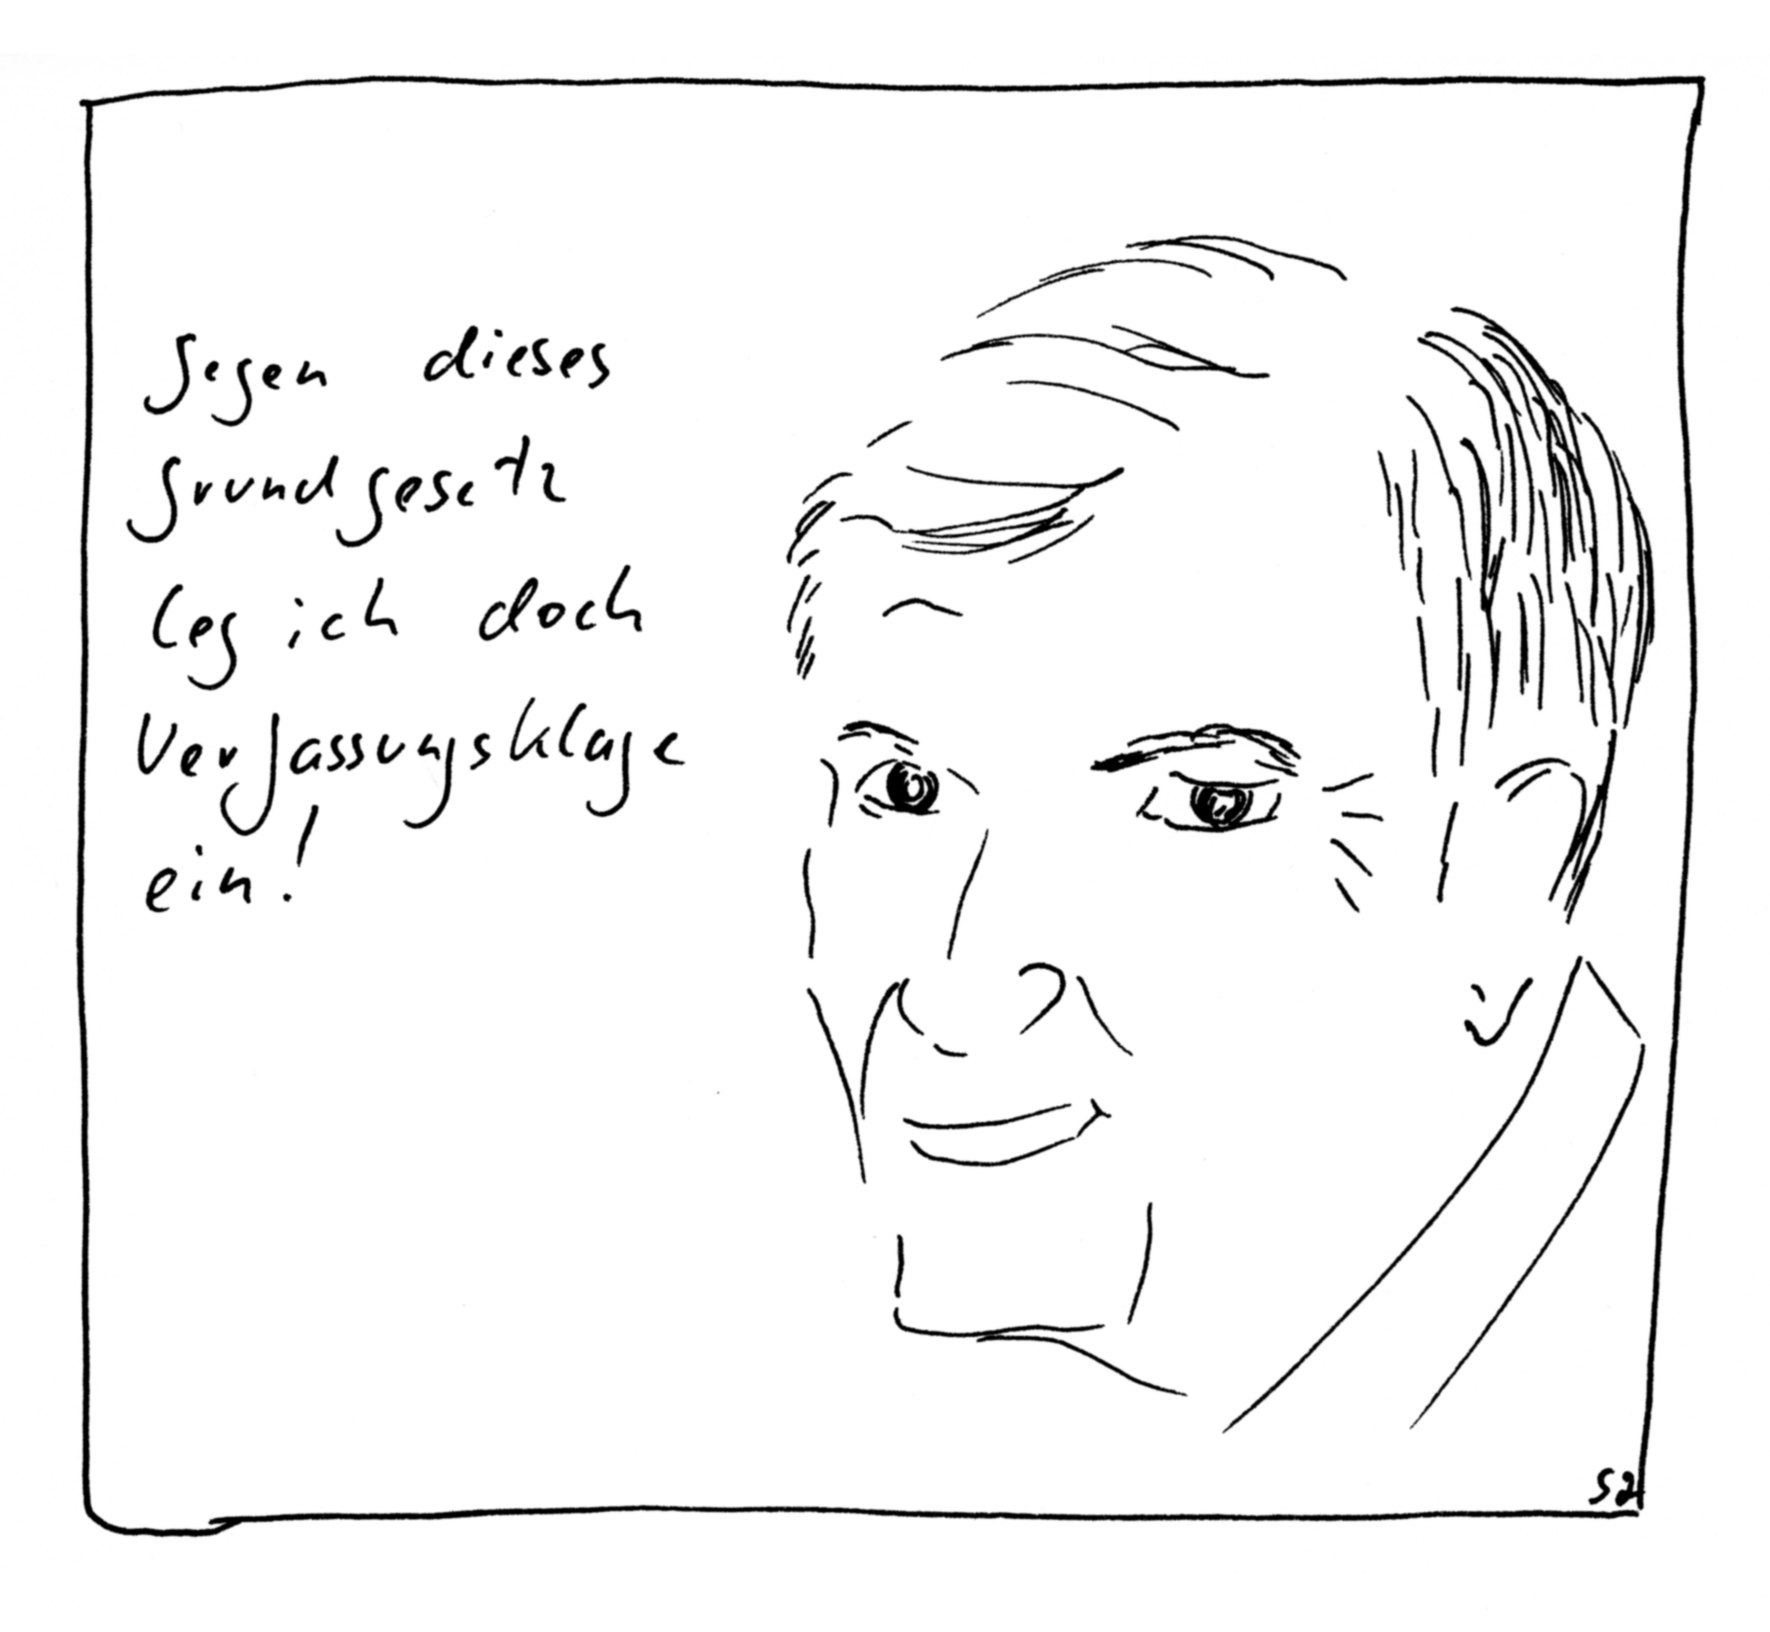 gegen dieses
grundgesetz
leg ich doch
Verfassungsklage
ein!